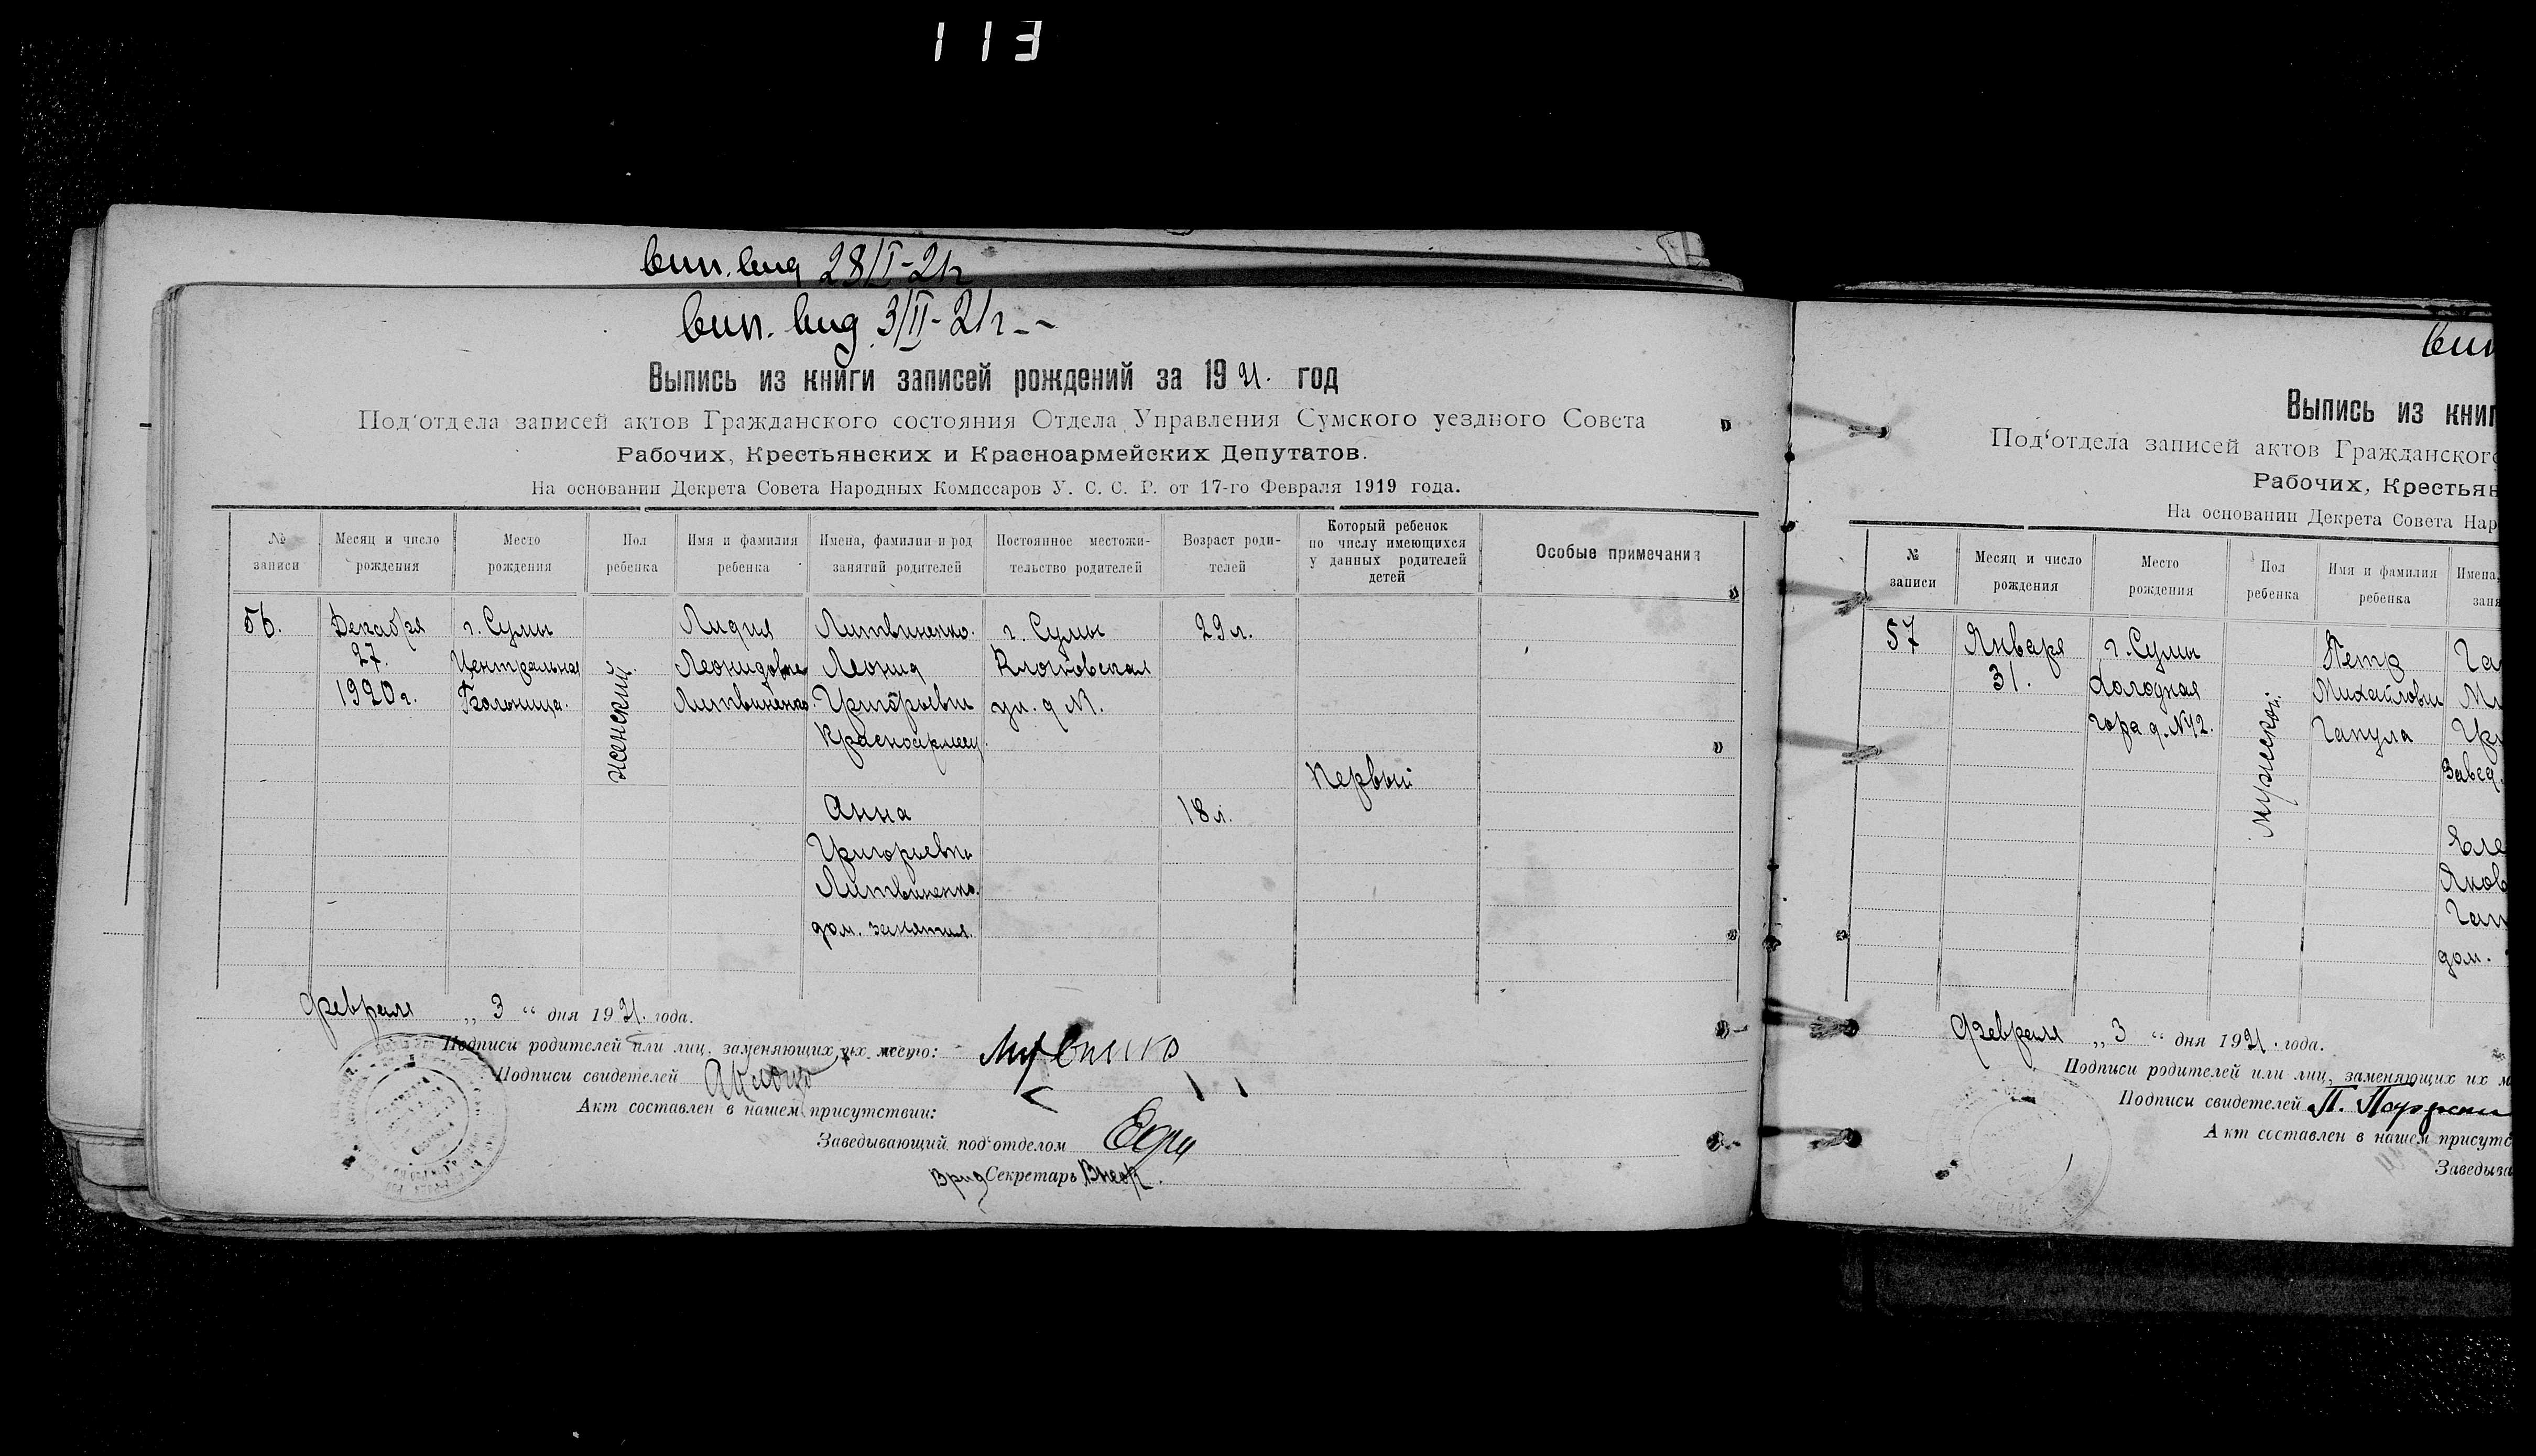 113
вып. выд 28/I-21г
вып. выд 3/II-21г--
Выпись из книги записей рождений за 1921. год
Под'отдела записей актов Гражданского состояния Отдела Управления Сумского уездного Совета
Рабочих, Крестьянских и Красноармейских Депутатов.
На основании Декрета Совета Народных Комиссаров У. С. С. Р. от 17-го Февраля 1919 года.
№ записи
Месяц и число рождения
Место рождения
Пол ребенка
Имя и фамилия ребенка
Имена, фамилии и род занятий родителей
Постоянное местожи-
тельство родителей
Возраст роди-
телей
Который ребенок
по числу имеющихся
у данных родителей
детей
Особые примечания
56.
Декабря
27.
1920г.
г. Сумы
Центральная
Больница.
женский.
Лидия
Леонидовна
Литвиненко
Литвиненко.
Леонид
Григорьевич
Красноармеец.
Анна
Григорьевна
Литвиненко.
дом. занятия.
г. Сумы
ул. д
29 л.
18 л.
Первый
Февраля „ 3 “ дня 1921. года.
Подписи родителей или лиц, заменяющих их место:
Подписи свидетелей
Акт составлен в нашем присутствии:
Заведывающий под'отделом
Врид Секретарь
Выпись из книг
Под'отдела записей актов Гражданского
Рабочих, Крестьян
На основании Декрета Совета Нар
№ записи
Месяц и число рождения
Место рождения
Пол ребенка
Имя и фамилия ребенка
Имена,
заня
57
Января
31.
г. Сумы
Холодная
гора д. №42.
мужской.
Петр
Михайлович
Гапула
Га
Завед.
Яков
Гап
дом.
Февраля „ 3 “ дня 1921. года.
Подписи родителей или лиц, заменяющих их м
Подписи свидетелей П.
Акт составлен в нашем присутс
Заведыва